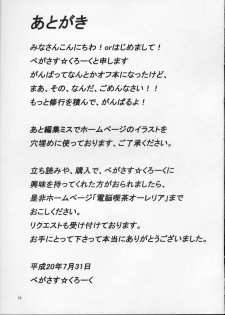 あとがき
みなさんこんにちわ!orはじめまして!
ぺがさす☆くろーくと申します
がんばってなんとかオフ本になったけど、
まあ、その、なんだ、ごめんなさい!
もっと修行を積んで、がんばるよ!
あと編集ミスでホームページのイラストを
穴埋めに使っております、ご了承ください。
立ち読みや、購入で、ぺがさす☆くろーくに
興味を持ってくれた方がおられましたら、
是非ホームページ「電脳喫茶オーレリア」まで
おこしください。
リクエストも受け付けております。
お手にとって下さって本当にありがとうございました。
平成20年7月31日
ぺがさす☆くろーく